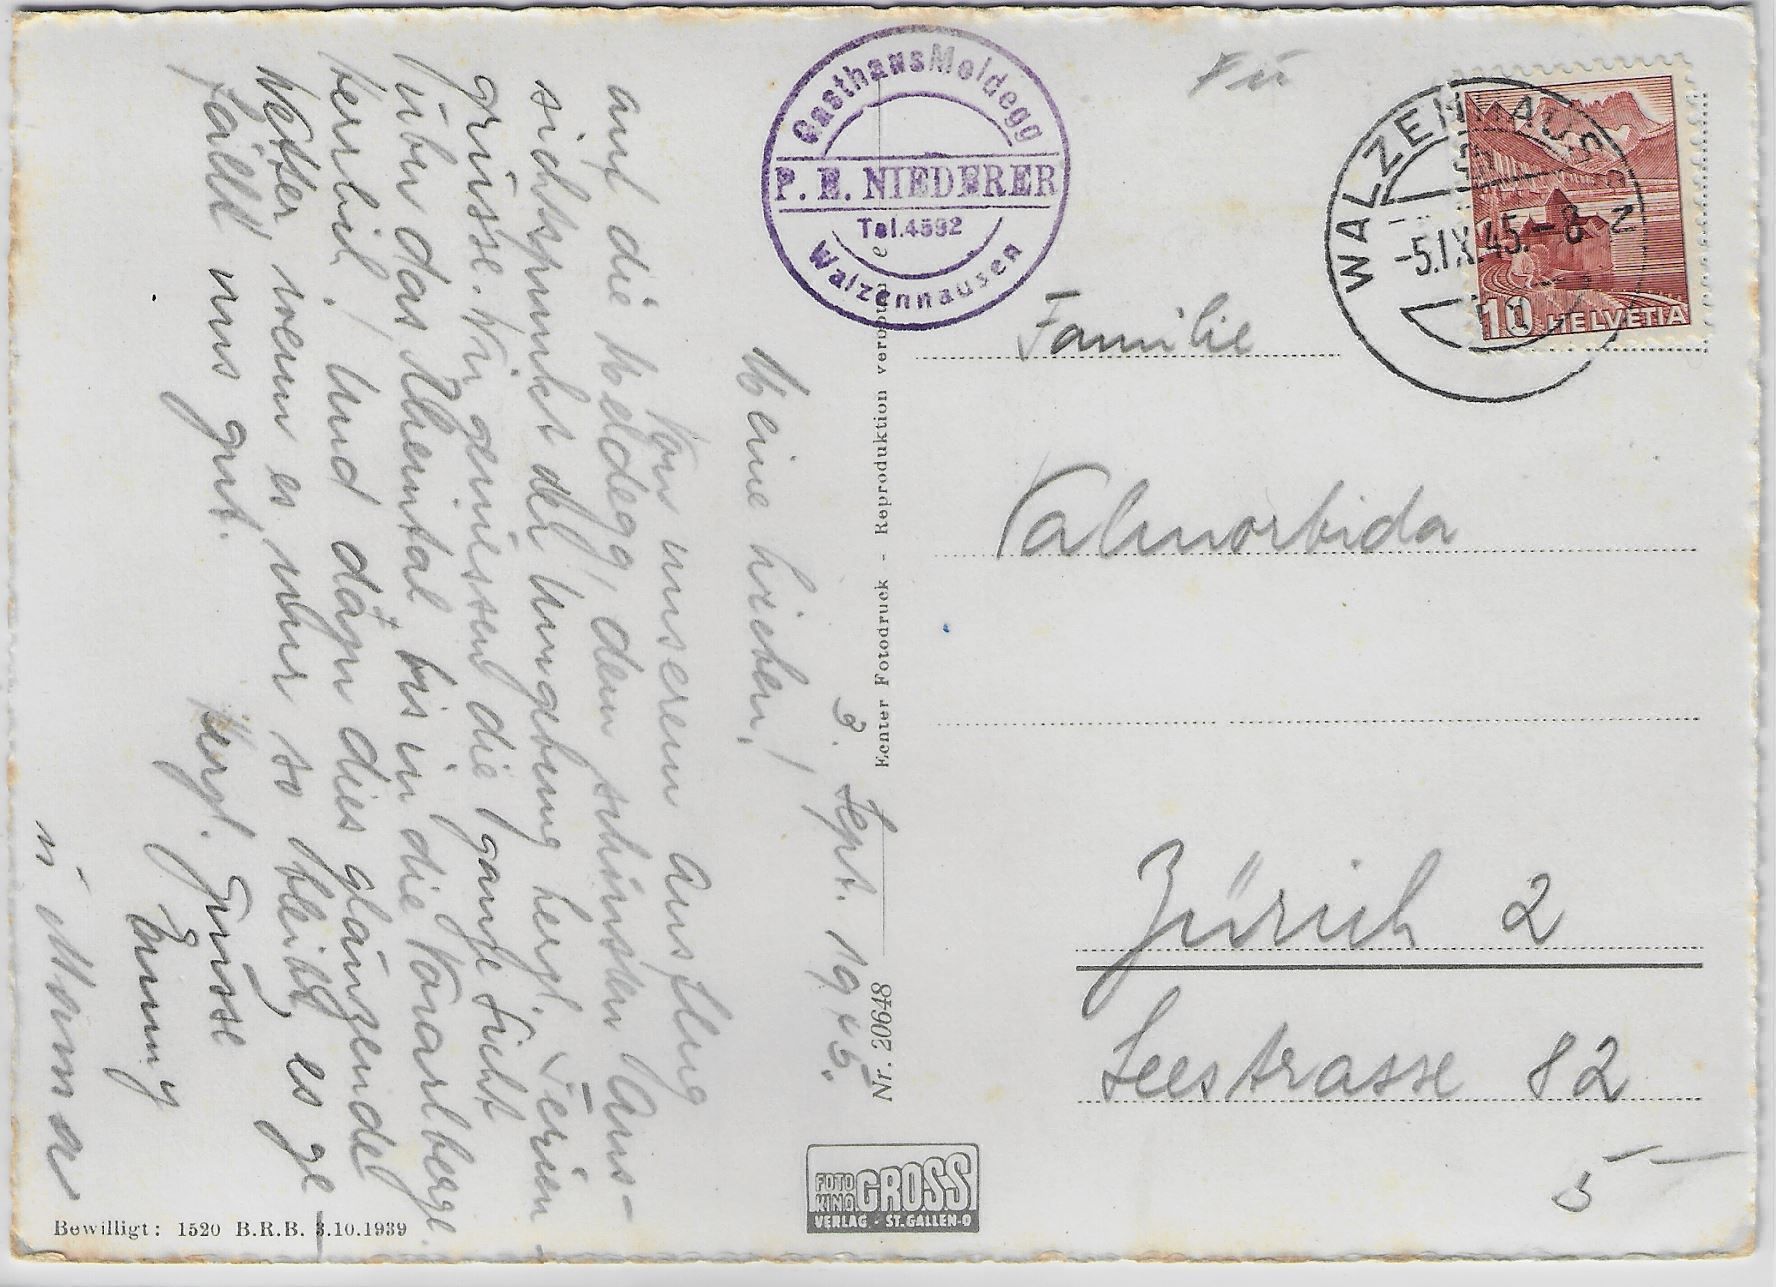 3. Sept. 1945.
Meine Lieben!
Von unserem Ausflug
auf die Meldegg, dem schönsten Aus-
sichtspunkt der Umgebung herzl. Ferien-
grüsse. Wir geniessen die ganze Sicht
über das Rheintal bis in die Vorarlberge.
herrlich! Und dazu dies glänzende
Wetter, wenn es nur so bleibt, es ge
fällt uns gut.
Herzl. Grüsse
Emmy
u. Mama
Gasthaus Meldegg
P. E. NIEDERER
Tel. 4592
Walzenhausen
WALZENHAUSEN
-5.IX.45.-8
10 HELVETIA
Familie
Valmorbida
Zürich 2
Seestrasse 82
5
Echter Fotodruck - Reproduktion verboten
Nr. 20648
FOTO KINO GROSS
VERLAG - ST.GALLEN-O
Bewilligt: 1520 B.R.B. 3.10.1939